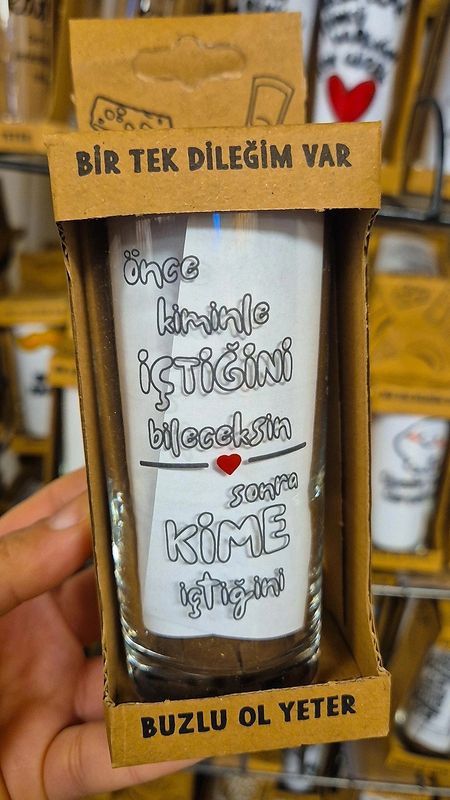 BİR TEK DİLEĞİM VAR
önce
kiminle
İÇTİĞİNİ
bileceksin
sonra
KİME
içtiğini
BUZLU OL YETER